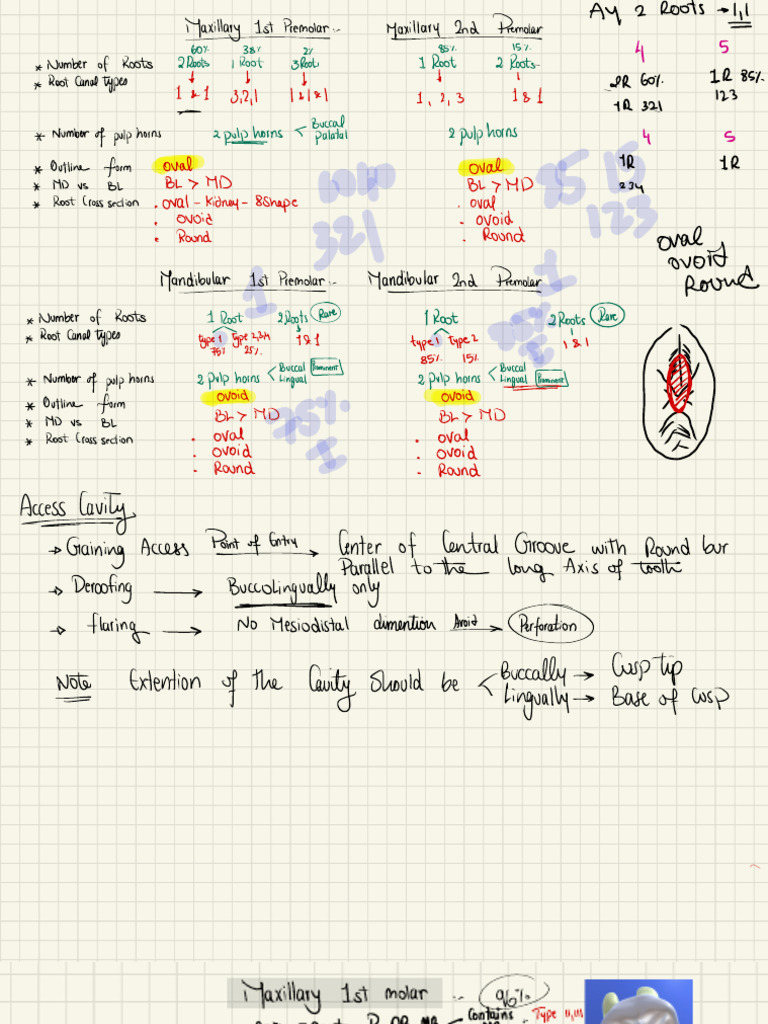 Maxillary 1st Premolar
Maxillary 2nd Premolar
Ay 2 Roots → 1,1
60% 38% 2%
85% 15%
* Number of Roots 2 Roots 1 Root 3 Root
1 Root 2 Roots
* Root Canal types 1 & 1 3,2,1 1&1&1
1, 2, 3 1 & 1
4 5
2R 60% 1R 85%
1R 321 123
4 5
1R 1R
234
* Number of pulp horns 2 pulp horns < Buccal
Palatal
2 pulp horns
* Outline form oval
oval
* MD vs BL BL > MD
BL > MD
* Root Cross section . oval - Kidney - 8 Shape
. oval
. ovoid
- ovoid
. Round
. Round
1040
321
85 15
123
oval
ovoid
Round
Mandibular 1st Premolar
Mandibular 2nd Premolar
1
I
* Number of Roots 1 Root 2 Roots Rare
1 Root 2 Roots Rare
* Root Canal types type 1 type 2,3,4 1 & 1
75% 25%
type 1 type 2 1 & 1
85% 15%
* Number of pulp horns 2 pulp horns < Buccal Prominent
Lingual
2 pulp horns < Buccal
Lingual Prominent
* Outline form ovoid
ovoid
* MD vs BL BL > MD
BL > MD
* Root Cross section . oval
. oval
. ovoid
. ovoid
- Round
- Round
75%
I
Access Cavity
→ Gaining Access Point of Entry → Center of Central Groove with Round bur
Parallel to the long Axis of tooth
→ Deroofing → BuccoLingually only
→ flaring → No Mesiodistal dimention Avoid → Perforation
Note Extention of the Cavity Should be < Buccally → Cusp tip
Lingually → Base of Cusp
Maxillary 1st molar 96%
Contains Type II, III